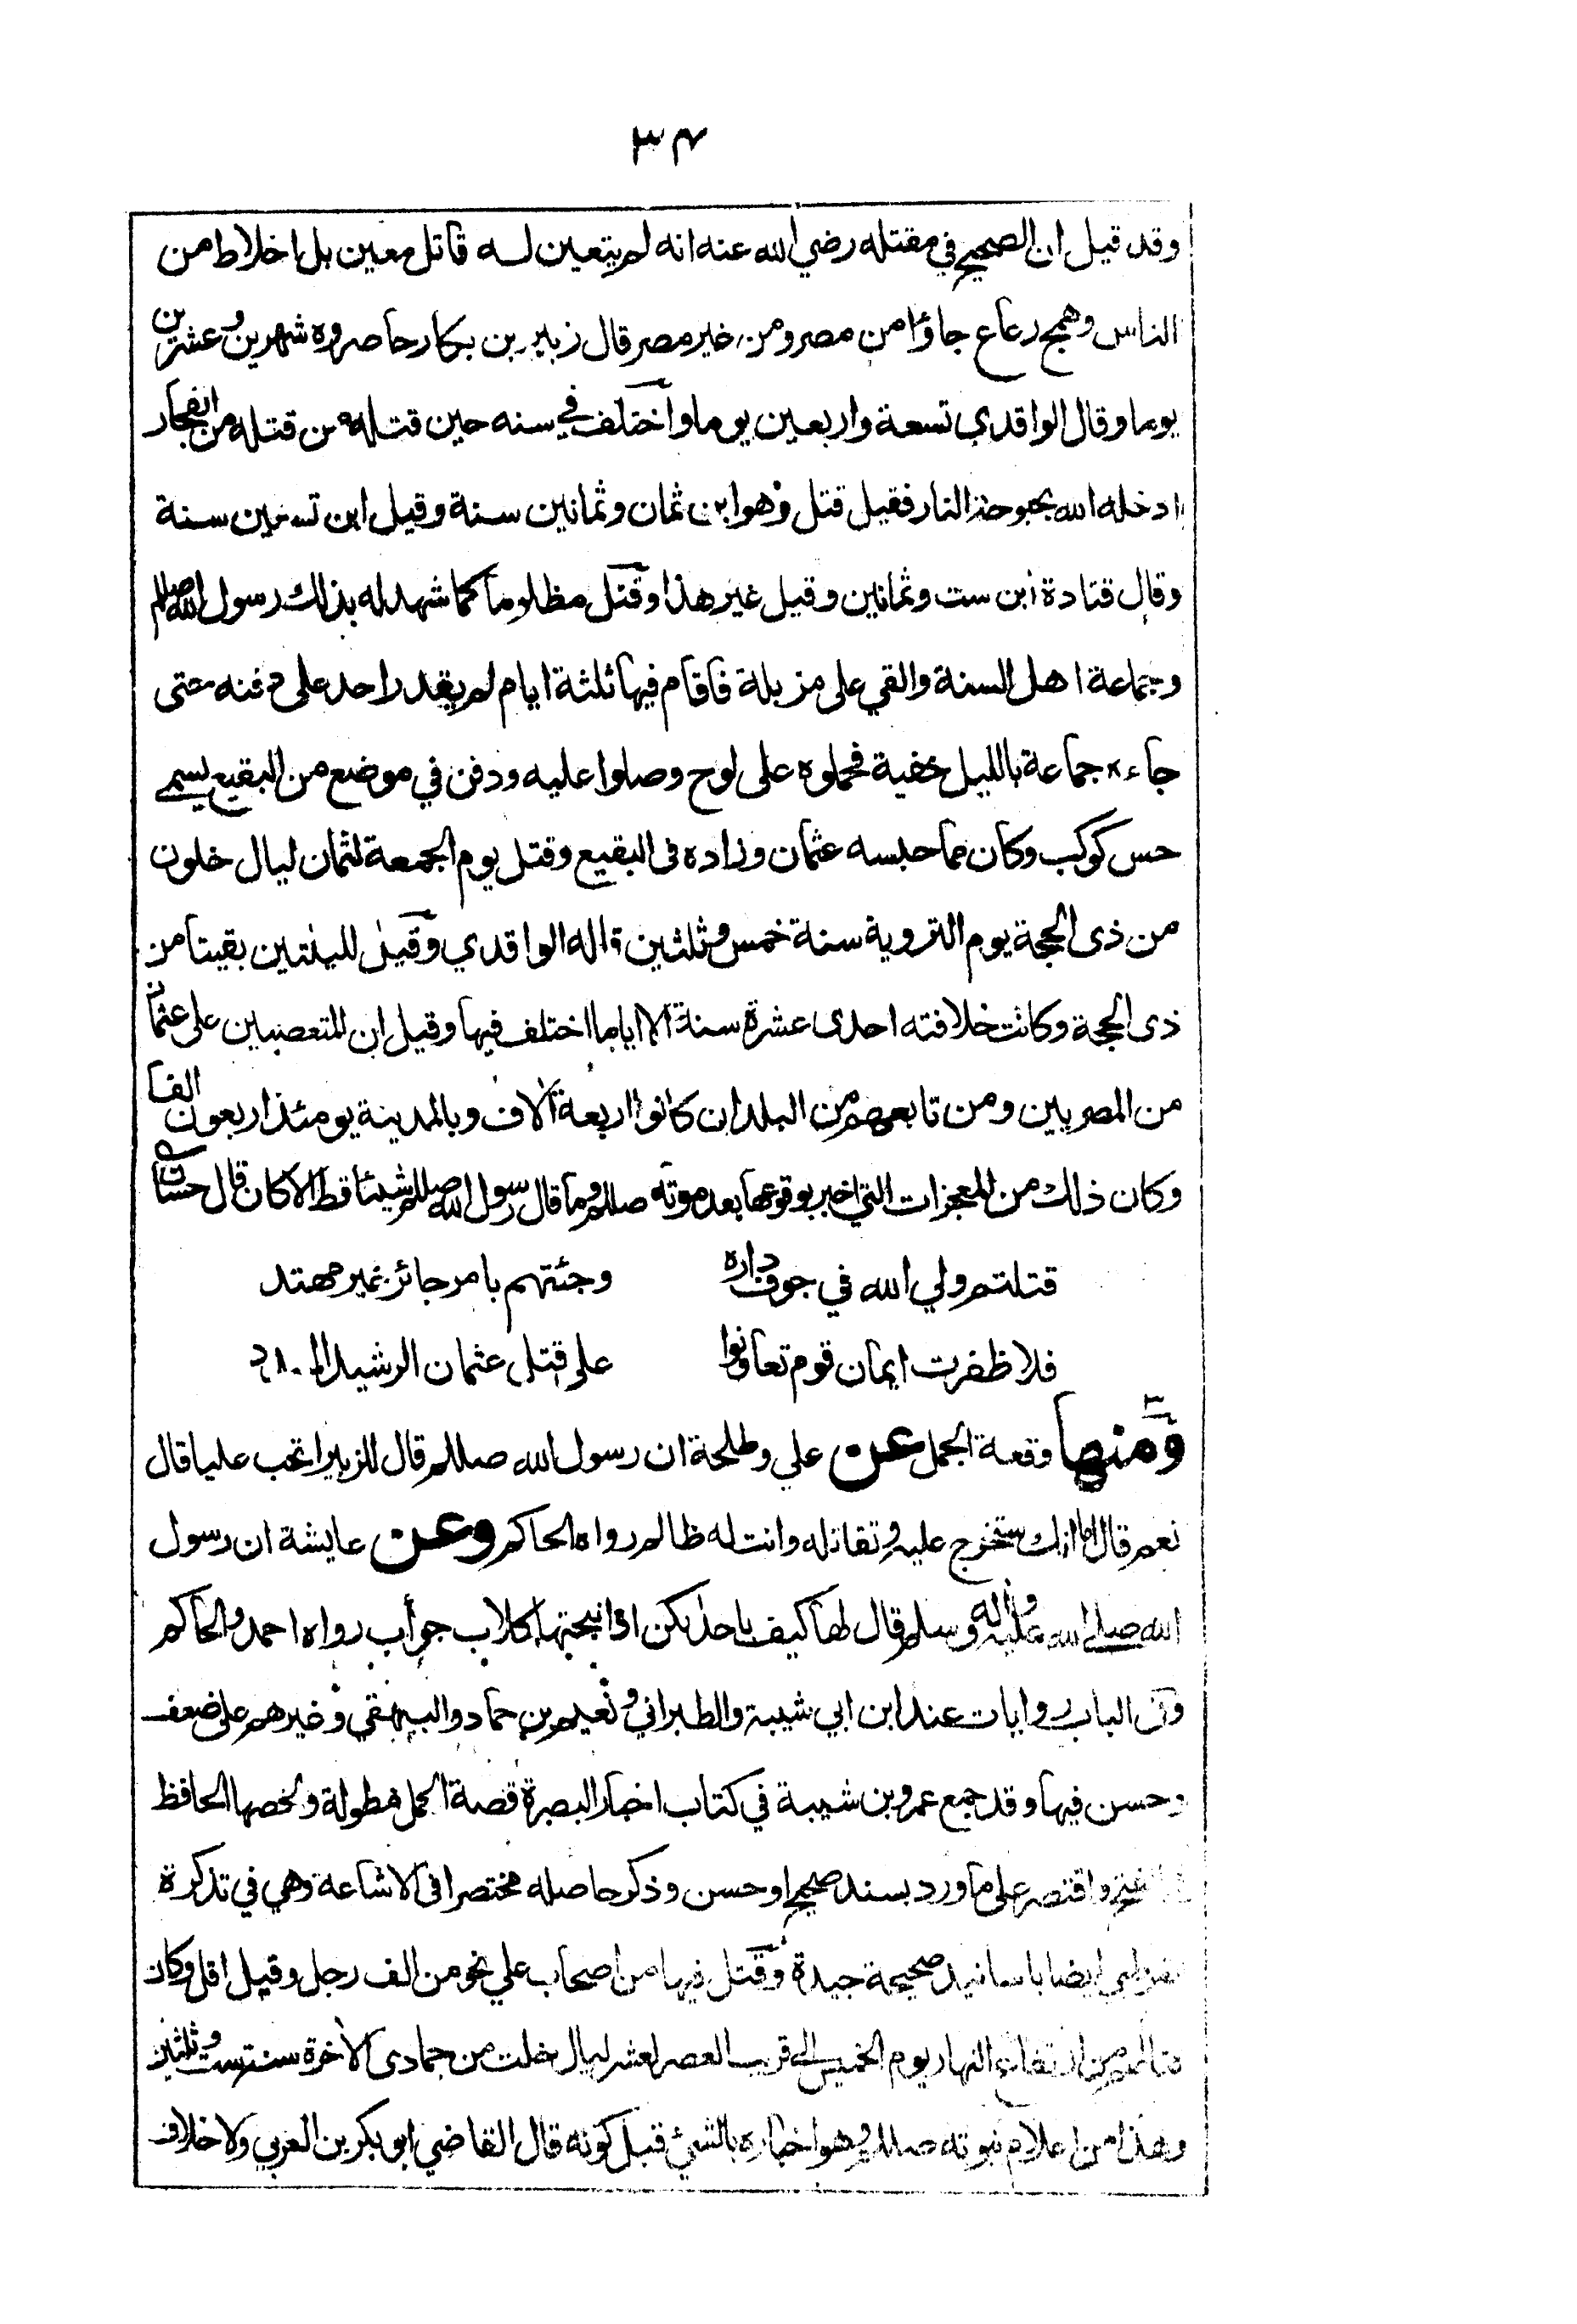 ٣٤
وقد قيل ان الصحيح في مقتله رضي الله عنه انه لم يتعين له قاتل معين بل اخلاط من
الناس وهمج رعاع جاؤا من مصر ومن غير مصر قال زبير بن بكار حاصروه شهرين وعشرين
يوما وقال الواقدي تسعة واربعين يوما واختلف في سنه حين قتله من قتله من الفجار
ادخله الله بحبوحة النار فقيل قتل وهو ابن ثمان وثمانين سنة وقيل ابن تسعين سنة
وقال قتادة ابن ست وثمانين وقيل غير هذا وقتل مظلوما كما شهد له بذلك رسول الله صللم
وجماعة اهل السنة والقي على مزبلة فاقام فيها ثلثة ايام لم يقدر احد على دفنه حتى
جاءه جماعة بالليل خفية فحملوه على لوح وصلوا عليه ودفن في موضع من البقيع يسمى
حس كوكب وكان مما حبسه عثمان وزاده فى البقيع وقتل يوم الجمعة لثمان ليال خلون
من ذى الحجة يوم التروية سنة خمس وثلثين قاله الواقدي وقيل لليلتين بقيتا من
ذى الحجة وكانت خلافته احدى عشرة سنة الا اياما اختلف فيها وقيل ان المتعصبين على عثمان
من المصريين ومن تابعهم من البلدان كانوا اربعة آلاف وبالمدينة يومئذ اربعون الفا
وكان ذلك من المعجزات التي اخبر بوقوعها بعد موته صللم وما قال رسول الله صللم شيئا قط الا كان قال حسان
قتلتم ولي الله في جوف داره وجئتهم بامر جائز غير مهتد
فلا ظفرت ايمان قوم تعاونوا على قتل عثمان الرشيد
ومنها وقعة الجمل عن علي وطلحة ان رسول الله صللم قال للزبير اتحب عليا قال
نعم قال اما انك ستخرج عليه وتقاتله وانت له ظالم رواه الحاكم وعن عايشة ان رسول
الله صلى الله عليه واله وسلم قال لها كيف باحدٰكن اذا نبحتها كلاب حوأب رواه احمد والحاكم
وفى الباب روايات عند ابن ابي شيبة والطبراني ونعيم بن حماد والبيهقي وغيرهم على ضعف
وحسن فيها وقد جمع عمرو بن شيبة في كتاب اخبار البصرة قصة الجمل مطولة ولخصها الحافظ
واقتصر على ما ورد بسند صحيح او حسن وذكر حاصله مختصرا فى الاشاعة وهي في تذكرة
ايضا باسانيد صحيحة جيدة وقتل فيها من اصحاب علي نحو من الف رجل وقيل اقل وكان
قتالهم من ارتفاع النهار يوم الخميس الى قريب العصر لعشر ليال خلت من جمادى الآخرة سنة ست وثلثين
وهذا من اعلام نبوته صللم وهو اخباره بالشئ قبل كونه قال القاضي ابو بكر بن العربي ولا خلاف